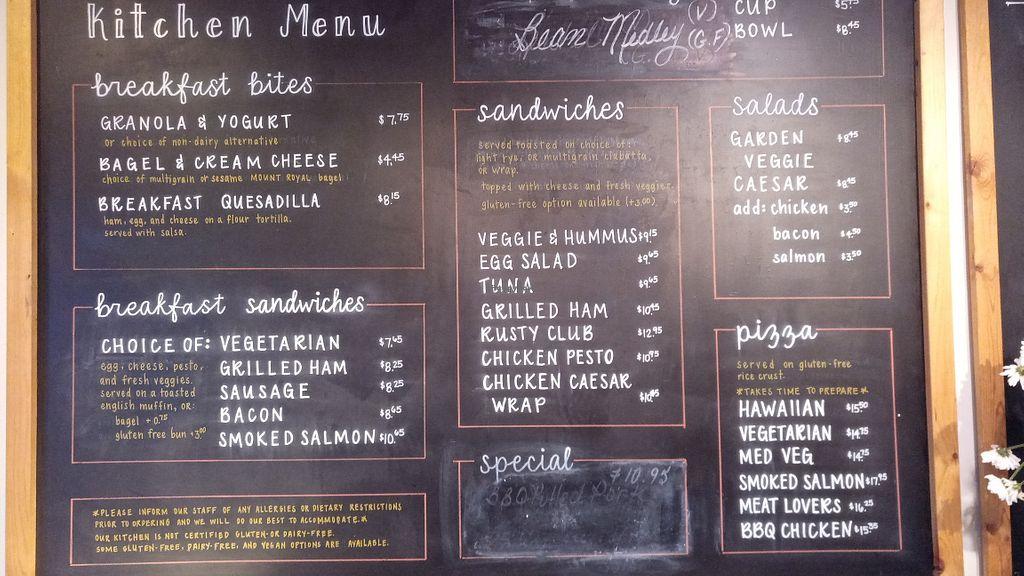 Kitchen Menu
Bean Medley (V) (G.F)
CUP $5.75
BOWL $8.45
breakfast bites
GRANOLA & YOGURT $7.75
or choice of non-dairy alternative
BAGEL & CREAM CHEESE $4.45
choice of multigrain or sesame MOUNT ROYAL bagel
BREAKFAST QUESADILLA $8.15
ham, egg, and cheese on a flour tortilla.
served with salsa.
breakfast sandwiches
CHOICE OF: VEGETARIAN $7.45
GRILLED HAM $8.25
SAUSAGE $8.25
BACON $8.65
SMOKED SALMON $10.45
egg, cheese, pesto,
and fresh veggies.
served on a toasted
english muffin, or:
bagel +0.75
gluten free bun +3.00
*PLEASE INFORM OUR STAFF OF ANY ALLERGIES OR DIETARY RESTRICTIONS
PRIOR TO ORDERING AND WE WILL DO OUR BEST TO ACCOMMODATE.*
OUR KITCHEN IS NOT CERTIFIED GLUTEN- OR DAIRY-FREE.
SOME GLUTEN-FREE, DAIRY-FREE, AND VEGAN OPTIONS ARE AVAILABLE.
sandwiches
served toasted on choice of:
light rye, or multigrain ciabatta,
or wrap.
topped with cheese and fresh veggies.
gluten-free option available (+3.00)
VEGGIE & HUMMUS $9.15
EGG SALAD $9.65
TUNA $9.65
GRILLED HAM $10.45
RUSTY CLUB $12.95
CHICKEN PESTO $10.95
CHICKEN CAESAR
WRAP
special
$10.95
salads
GARDEN $8.45
VEGGIE
CAESAR $8.45
add: chicken $3.50
bacon $4.50
salmon $3.50
pizza
served on gluten-free
rice crust.
*TAKES TIME TO PREPARE*
HAWAIIAN $15.50
VEGETARIAN $14.75
MED VEG $14.75
SMOKED SALMON $17.95
MEAT LOVERS $16.25
BBQ CHICKEN $15.55